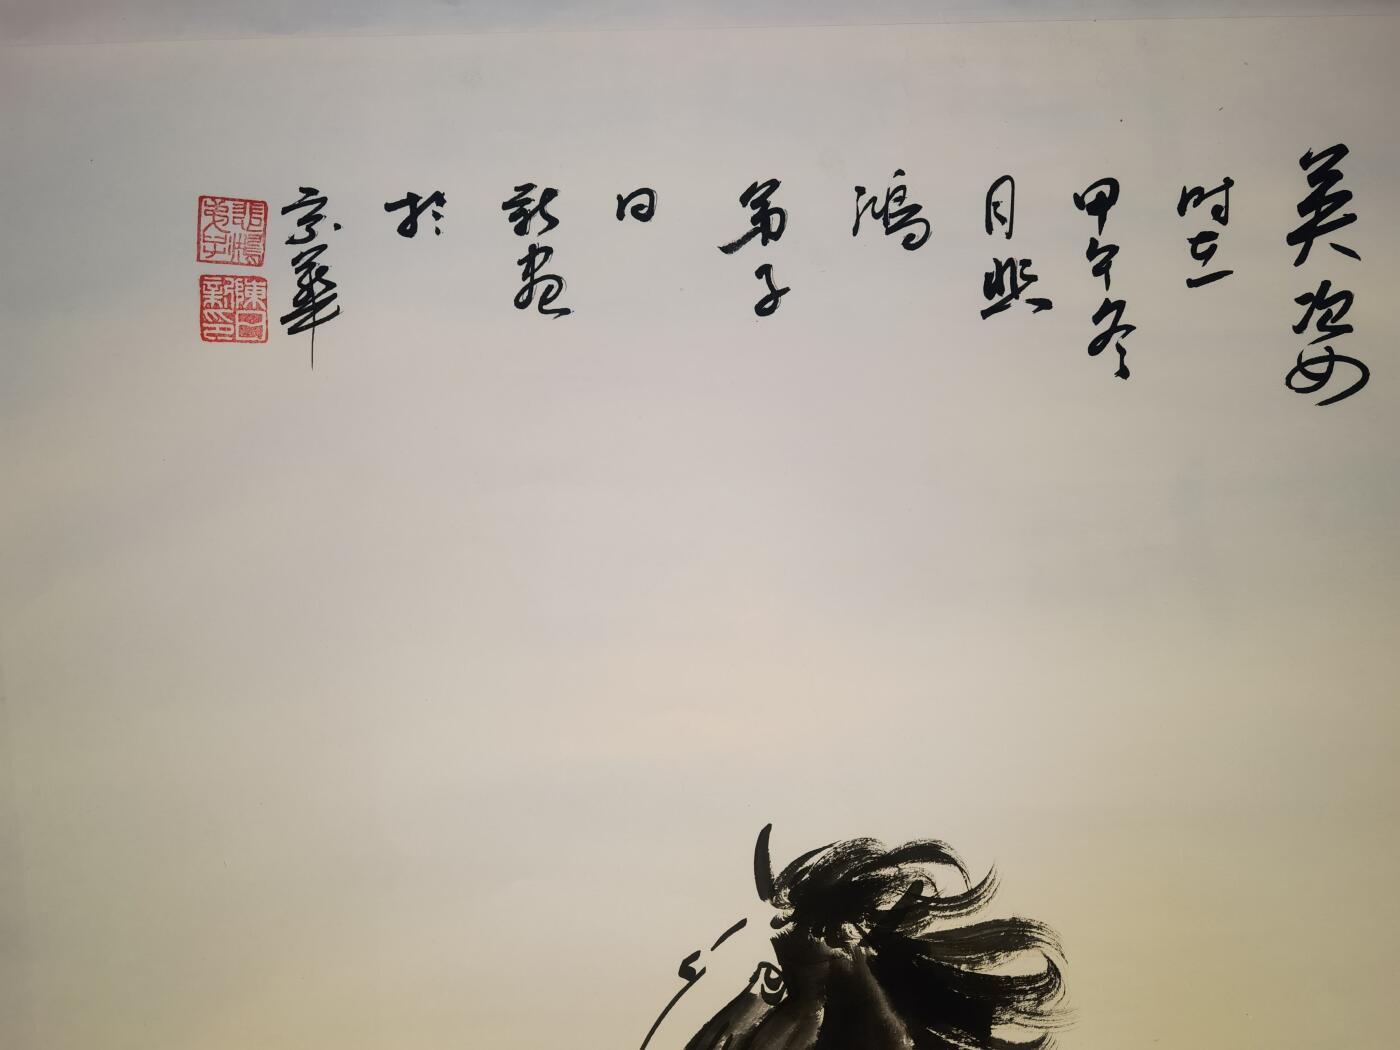 英姿
时在
甲午冬
月悲
鸿
弟子
日
新画
於
京華
悲鴻弟子
陳日新印